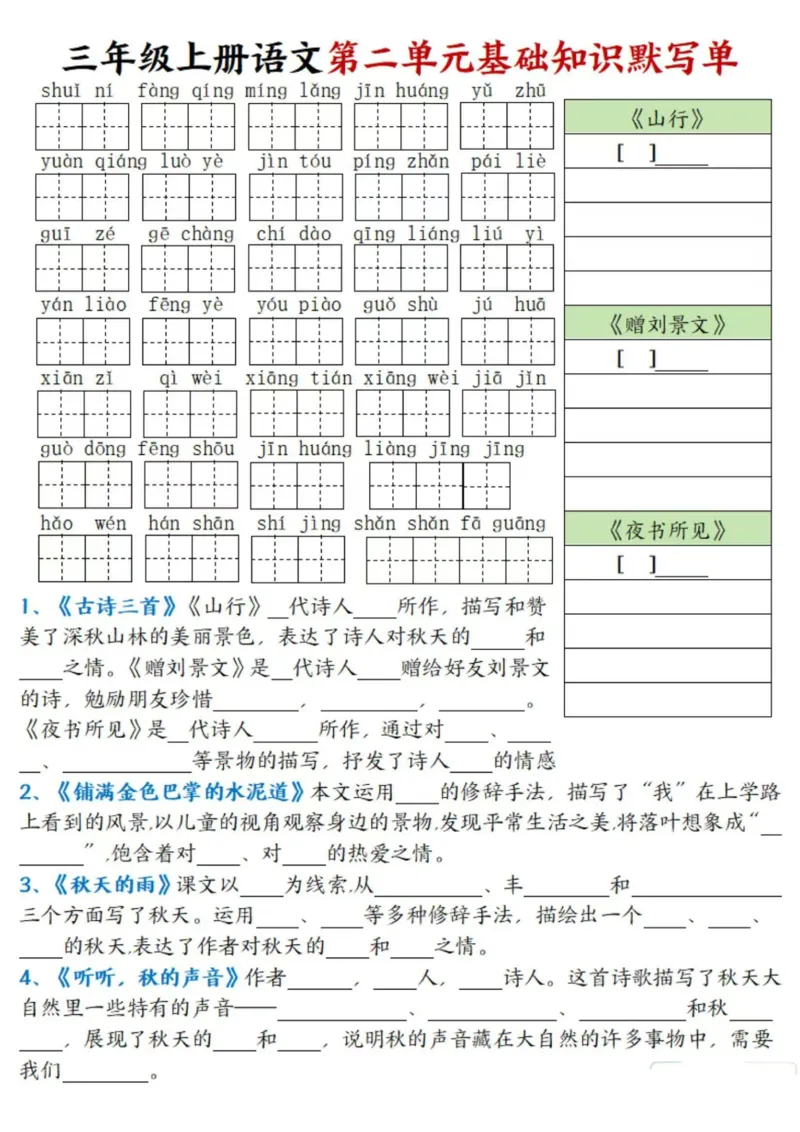 三年级上册语文第二单元基础知识默写单
shuǐ ní fàng qíng míng lǎng jīn huáng yǔ zhū
yuàn qiáng luò yè jìn tóu píng zhǎn pái liè
guī zé gē chàng chí dào qīng liáng liú yì
yán liào fēng yè yóu piào guǒ shù jú huā
xiān zǐ qì wèi xiāng tián xiāng wèi jiā jǐn
guò dōng fēng shōu jīn huáng liàng jīng jīng
hǎo wén hán shān shí jìng shǎn shǎn fā guāng
《山行》
[ ]_____
《赠刘景文》
[ ]_____
《夜书所见》
[ ]_____
1、《古诗三首》《山行》__代诗人____所作，描写和赞
美了深秋山林的美丽景色，表达了诗人对秋天的_____和
____之情。《赠刘景文》是__代诗人____赠给好友刘景文
的诗，勉励朋友珍惜________，_________，________。
《夜书所见》是__代诗人______所作，通过对____、____
__、____________等景物的描写，抒发了诗人____的情感
2、《铺满金色巴掌的水泥道》本文运用____的修辞手法，描写了“我”在上学路
上看到的风景,以儿童的视角观察身边的景物,发现平常生活之美,将落叶想象成“__
______”,饱含着对____、对____的热爱之情。
3、《秋天的雨》课文以____为线索,从__________、丰________和______________
三个方面写了秋天。运用____、____等多种修辞手法，描绘出一个____、____、
____的秋天,表达了作者对秋天的____和____之情。
4、《听听，秋的声音》作者______，____人，____诗人。这首诗歌描写了秋天大
自然里一些特有的声音——____________、____________、__________和秋____
____，展现了秋天的____和____，说明秋的声音藏在大自然的许多事物中，需要
我们________。